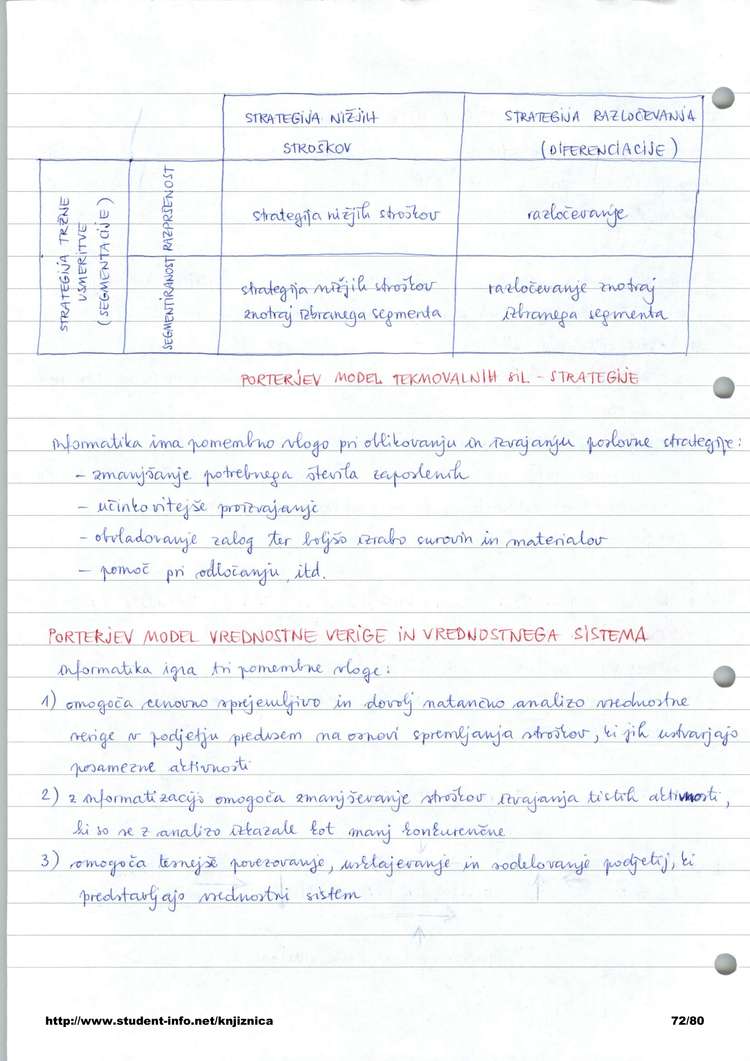 STRATEGIJA NIŽJIH
STROŠKOV
STRATEGIJA RAZLOČEVANJA
(DIFERENCIACIJE)
STRATEGIJA TRŽNE
USMERITVE
(SEGMENTACIJE)
RAZPRŠENOST
strategija nižjih stroškov
razločevanje
SEGMENTIRANOST
strategija nižjih stroškov
znotraj izbranega segmenta
razločevanje znotraj
izbranega segmenta
PORTERJEV MODEL TEKMOVALNIH SIL - STRATEGIJE
informatika ima pomembno vlogo pri oblikovanju in izvajanju poslovne strategije:
- zmanjšanje potrebnega števila zaposlenih
- učinkovitejše proizvajanje
- obvladovanje zalog ter boljšo izrabo surovin in materialov
- pomoč pri odločanju, itd.
PORTERJEV MODEL VREDNOSTNE VERIGE IN VREDNOSTNEGA SISTEMA
informatika igra tri pomembne vloge:
1) omogoča cenovno sprejemljivo in dovolj natančno analizo vrednostne
verige v podjetju predvsem na osnovi spremljanja stroškov, ki jih ustvarjajo
posamezne aktivnosti
2) z informatizacijo omogoča zmanjševanje stroškov izvajanja tistih aktivnosti,
ki so se z analizo izkazale kot manj konkurenčne
3) omogoča tesnejše povezovanje, usklajevanje in sodelovanje podjetij, ki
predstavljajo vrednostni sistem
http://www.student-info.net/knjiznica
72/80